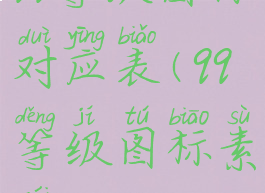 duì yìng biǎo
对应表(99
děng jí tú biāo sù
等级图标素